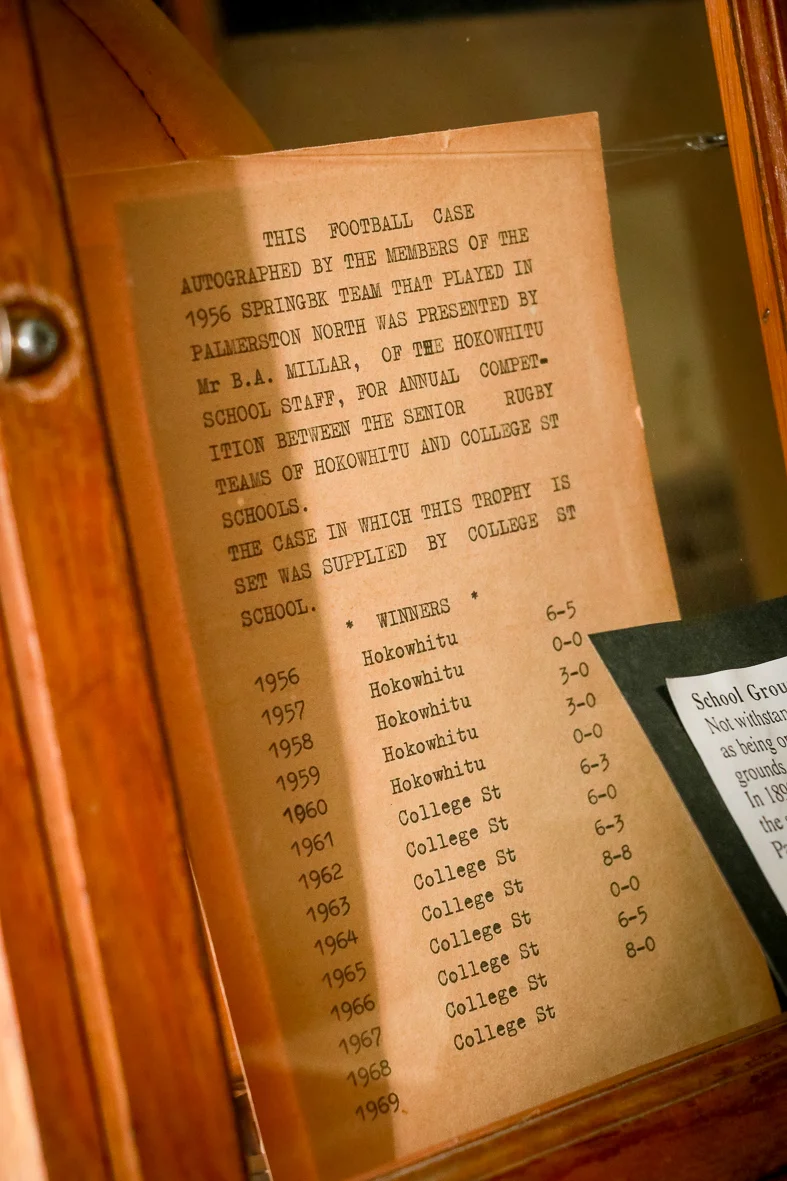 THIS FOOTBALL CASE
AUTOGRAPHED BY THE MEMBERS OF THE
1956 SPRINGBK TEAM THAT PLAYED IN
PALMERSTON NORTH WAS PRESENTED BY
Mr B.A. MILLAR, OF THE HOKOWHITU
SCHOOL STAFF, FOR ANNUAL COMPET-
ITION BETWEEN THE SENIOR RUGBY
TEAMS OF HOKOWHITU AND COLLEGE ST
SCHOOLS.
THE CASE IN WHICH THIS TROPHY IS
SET WAS SUPPLIED BY COLLEGE ST
SCHOOL.
* WINNERS *
1956 Hokowhitu 6-5
1957 Hokowhitu 0-0
1958 Hokowhitu 3-0
1959 Hokowhitu 3-0
1960 Hokowhitu 0-0
1961 College St 6-3
1962 College St 6-0
1963 College St 6-3
1964 College St 8-8
1965 College St 0-0
1966 College St 6-5
1967 College St 8-0
1968 College St
1969
School Grou
Not withstan
as being
grounds
In 189
the